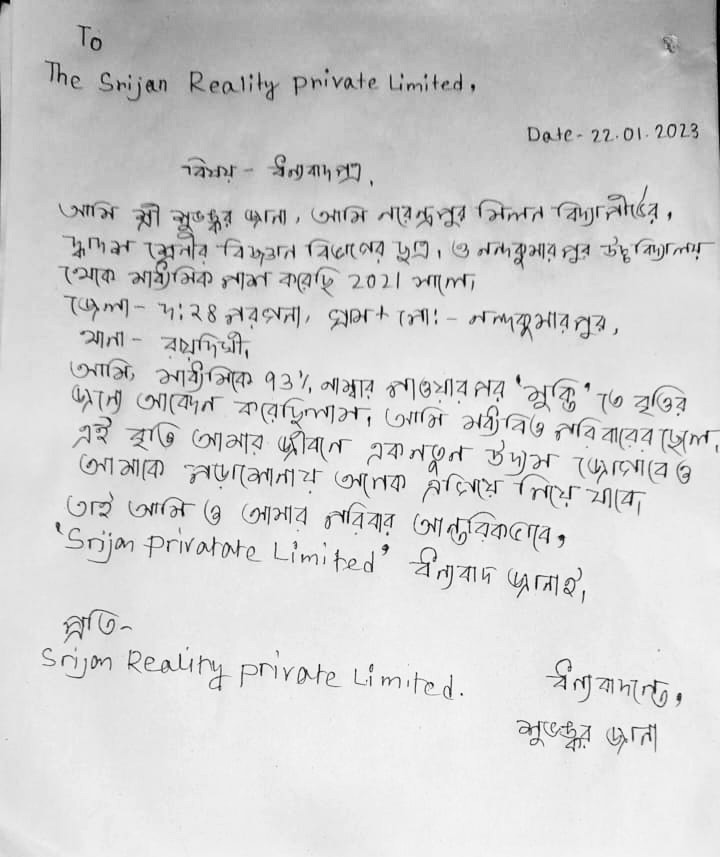 To
The Srijan Reality private Limited,
Date- 22.01.2023
বিষয় - ধন্যবাদপত্র,
আমি শ্রী শুভঙ্কর জানা, আমি নরেন্দ্রপুর মিলন বিদ্যাপীঠের,
দ্বাদশ শ্রেনীর বিজ্ঞান বিভাগের ছাত্র, ও নন্দকুমার পুর উচ্চ বিদ্যালয়
থেকে মাধ্যমিক পাশ করেছি 2021 সালে।
জেলা - দ: ২৪ পরগনা, গ্রাম + পো: - নন্দকুমারপুর,
থানা - রায়দিঘী,
আমি, মাধ্যমিকে 93% নাম্বার পাওয়ার পর 'মুক্তি' তে বৃত্তির
জন্যে আবেদন করেছিলাম, আমি মধ্যবিত্ত পরিবারের ছেলে,
এই বৃত্তি আমার জীবনে এক নতুন উদ্যম জোগাবে ও
আমাকে পড়াশোনায় অনেক এগিয়ে নিয়ে যাবে,
তাই আমি ও আমার পরিবার আন্তরিকভাবে,
'Srijan privatate Limited' ধন্যবাদ জানাই,
প্রতি-
Srijan Reality private Limited.
ধন্যবাদান্তে,
শুভঙ্কর জানা